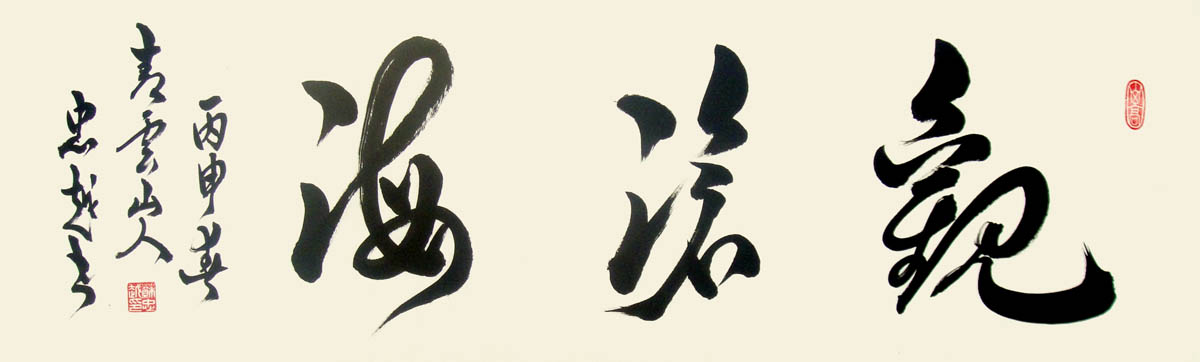 觀滄海
丙申春
青雲山人
忠越書